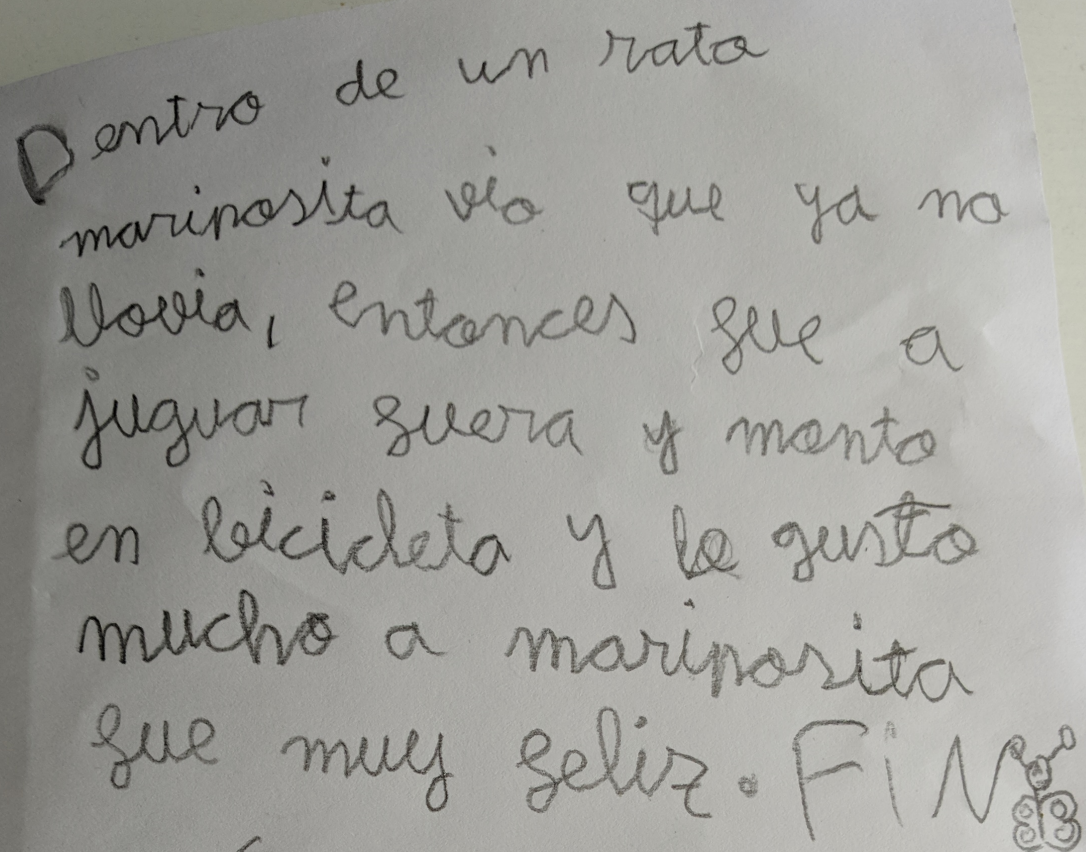 Dentro de un rato
mariposita vio que ya no
llovia, entonces fue a
juguar fuera y monto
en bicicleta y le gusto
mucho a mariposita
fue muy feliz. FIN